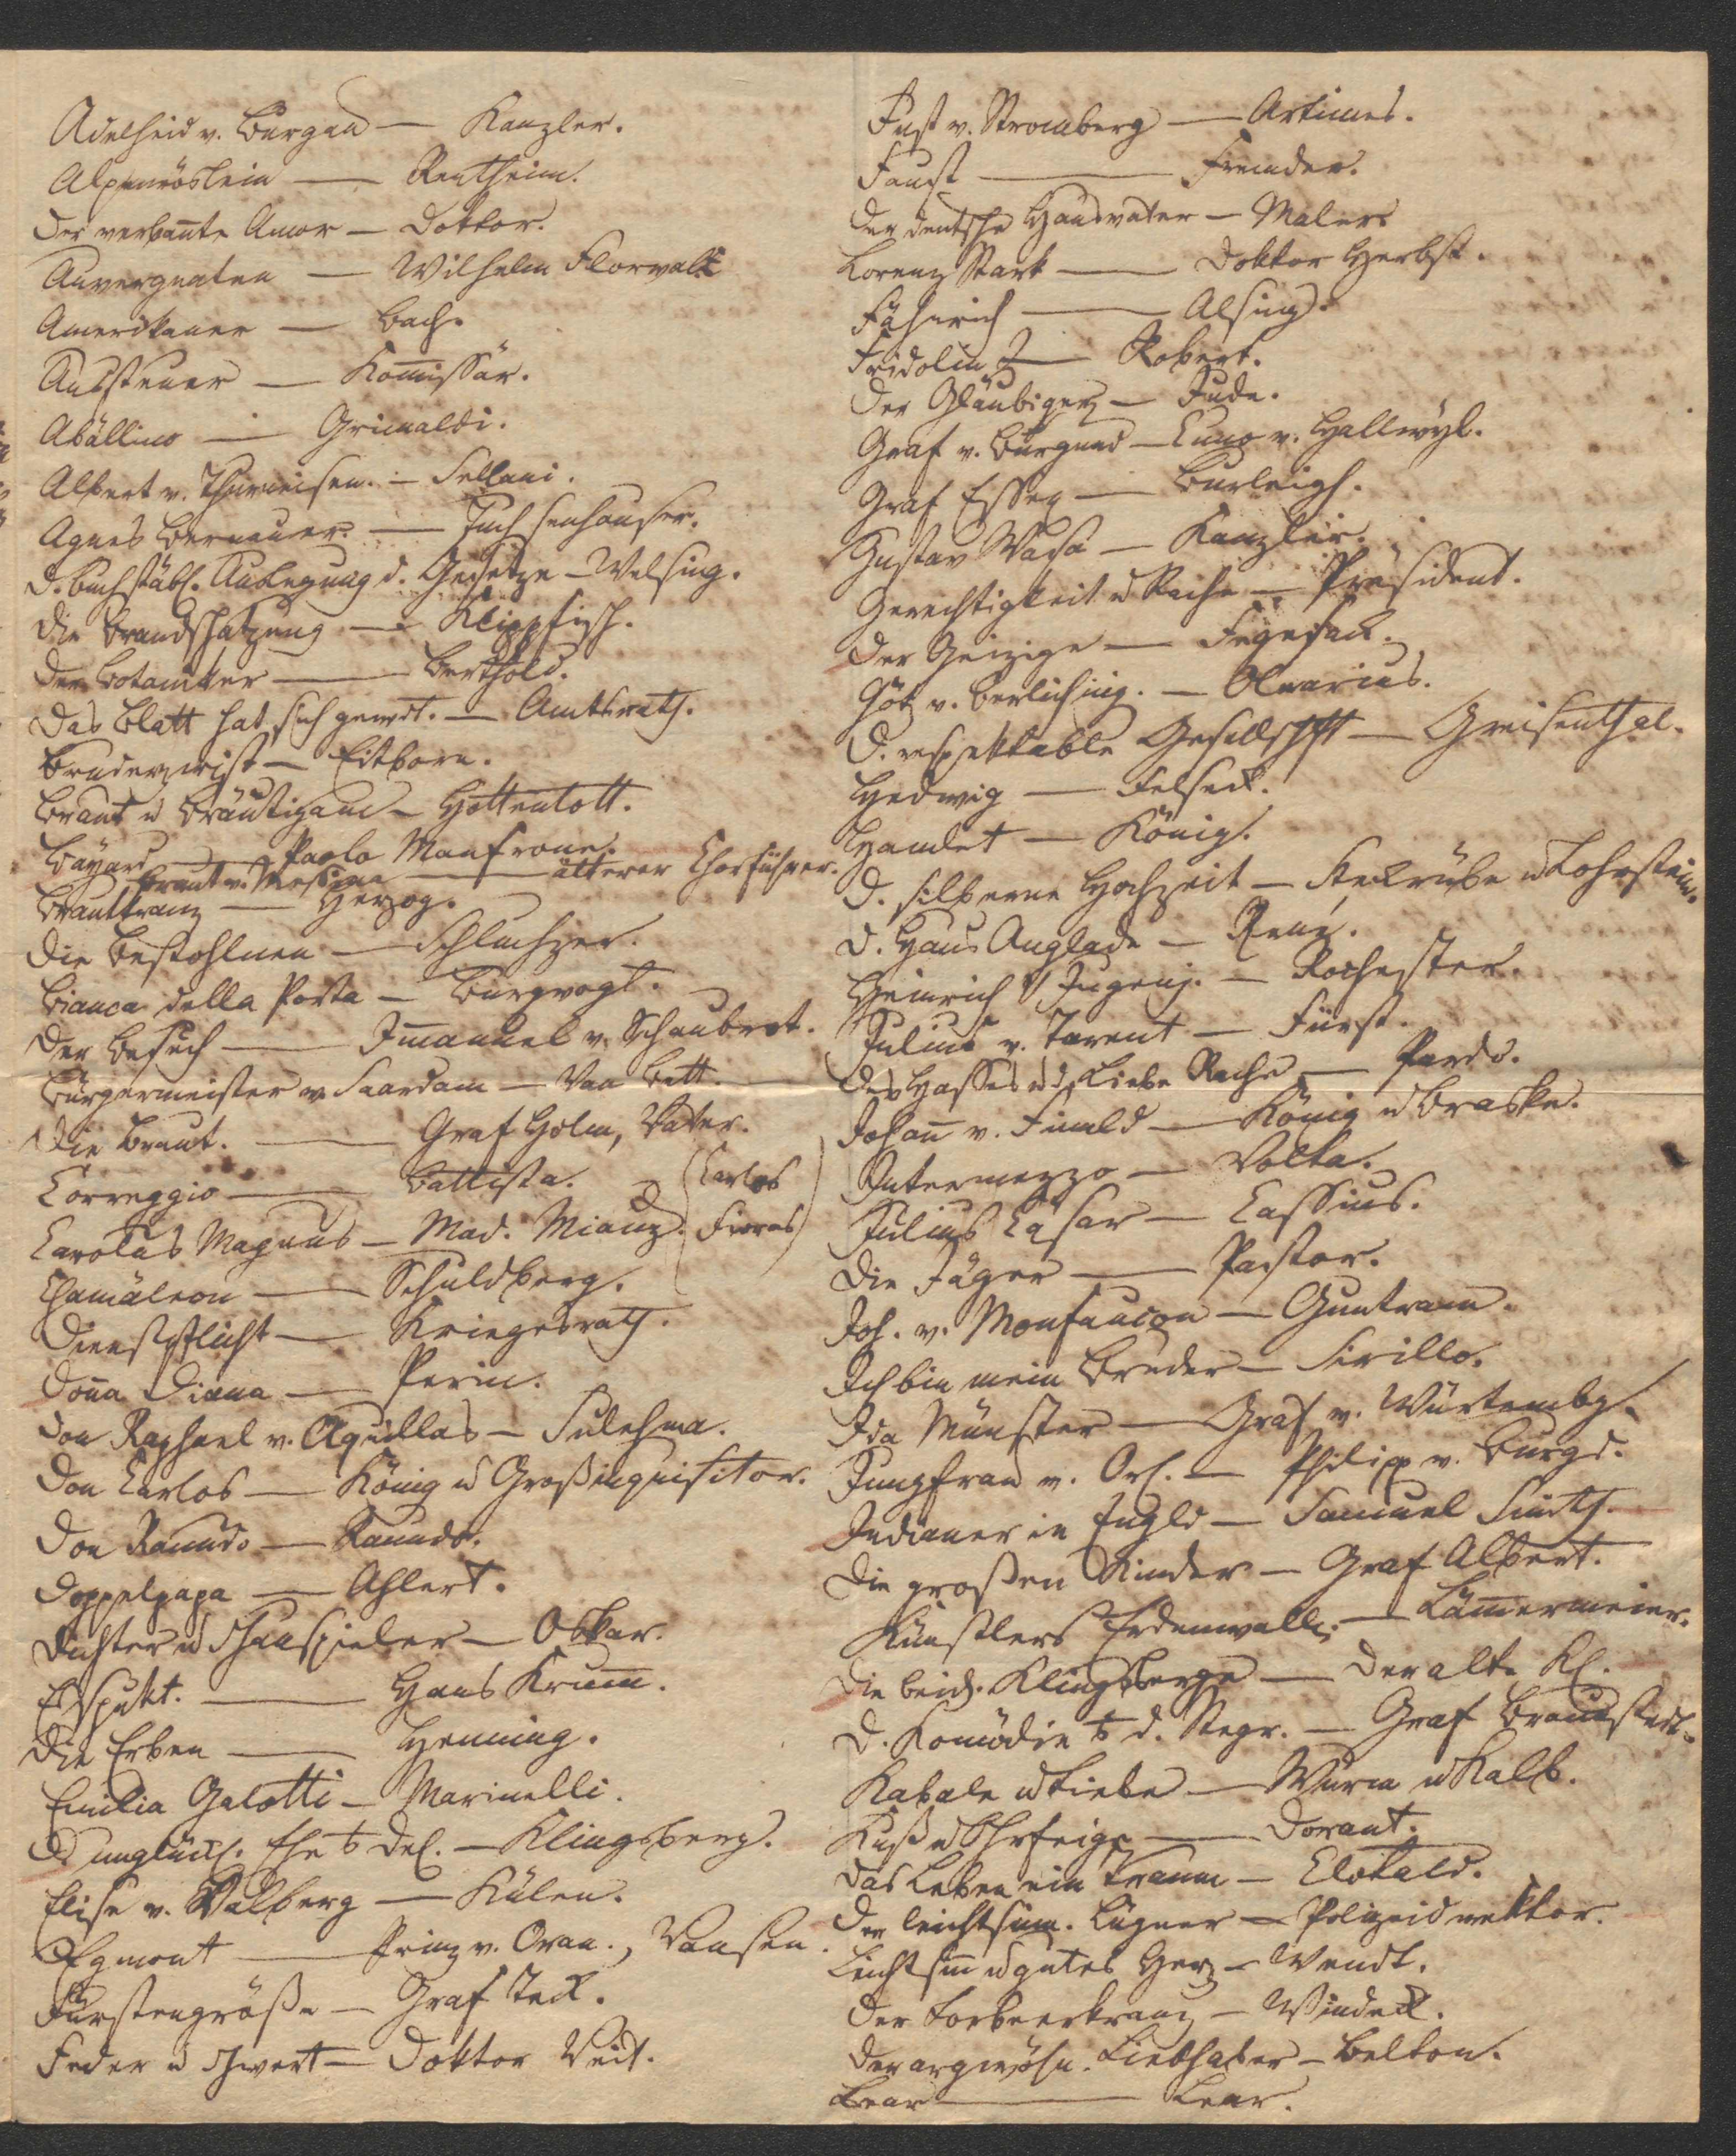 Adelheid v. Burgau — Kanzler.
Alpenröslein — Rentheim.
Der verban̄te Amor — Doktor.
Auvergnaten — Wilhelm Florwald
Amerikaner — Bach.
Aussteuer — Kom̄issär.
Abällino — Grimaldi.
Albert v. Thurneisen. — Sellani.
Agnes Bernauer. — Tuchsenhauser.
D. buchstäbl. Auslegung d. Gesetze — Welsing.
Die Brandschatzung — Klippfisch.
Der Botaniker — Berthold.
Das Blatt hat sich gewdt. — Amtsrath.
Bruderzwist — Eitborn.
Braut u Bräutigam — Hottentott.
Bayard — Paolo Manfrone.
Braut v. Messina — älterer Chorführer.
Brautkranz — Herzog.
Die Bestohlnen — Schluchzer.
Bianca della Porta — Burgvogt.
Der Besuch — Im̄anuel v. Schaubrot.
Bürgermeister v. Saardam — Van Bett.
Die Braut. — Graf Holm, Vater.
Correggio — Battista.
Carolus Magnus — Mad. Mianz. (Carlos Fioras)
Chamäleon — Schuldberg.
Dienstpflicht — Kriegsrath.
Don̄a Diana — Perin.
Don Raphael v. Aquillas — Suleyma.
Don Carlos — König u Großinquisitor.
Don Ranudo — Ranudo.
Doppelpapa — Ahlert.
Dichter u Schauspieler — Oskar.
Es spukt. — Hans Krum̄.
Die Erben — Henning.
Emilia Galotti — Marinelli.
D unglückl. Ehe d. Del. — Klingsberg.
Elise v. Valberg — Külen.
Egmont — Prinz v. Oran., Vansen.
Fürstengröße — Graf Teck.
Feder u Schwert — Doktor Veit.
Fust v. Stromberg — Artimes.
Faust — Fremder.
Der deutsche Hausvater — Maler
Lorenz Stark — Doktor Herbst.
Fähnrich — Alsing.
Fridolin — Robert.
Der Gläubiger — Jude.
Graf v. Burgund — Cuno v. Hallwyl.
Graf Essex — Burleigh.
Gustav Wasa — Kanzler.
Gerechtigkeit u Rache — Präsident.
Der Geizige — Fegesack.
Götz v. Berliching. — Olearius.
D. respektable Gesellschft — Greisenthal.
Hedwig — Felseck.
Hamlet — König.
D. silberne Hochzeit — Steckrübe u Lohrstein.
D. Haus Anglade — René.
Heinrich V Jugendj. — Rochester.
Julius v. Tarent — Fürst.
Des Hasses u d Liebe Rache — Pardo.
Johan̄ v. Finnld — König u Braske.
Intermezzo — Volta.
Julius Cäsar — Cassius.
Die Jäger — Pastor.
Joh. v. Monfaucon — Guntram.
Ich bin mein Bruder — Sirillo.
Ida Münster — Graf v. Würtembg.
Jungfrau v. Orl. — Philipp v. Burgd.
Indianer in Engld — Samuel Smith.
Die großen Kinder — Graf Albert.
Künstlers Erdenwallen. — Läm̄ermeier.
Die beid. Klingsberge — Der alte Kl.
D. Komödie a d. Stegr. — Graf Braunstedt.
Kabale u Liebe — Wurm u Kalb.
Kuß u Ohrfeige — Dorant.
Das Leben ein Traum — Clotald.
Der leichtsin̄. Lügner — Polizeidirektor.
Leichtsin̄ u gutes Herz — Wendt.
Der Lorbeerkranz — Windeck.
Der argwöhn. Liebhaber — Belton.
Lear — Lear.